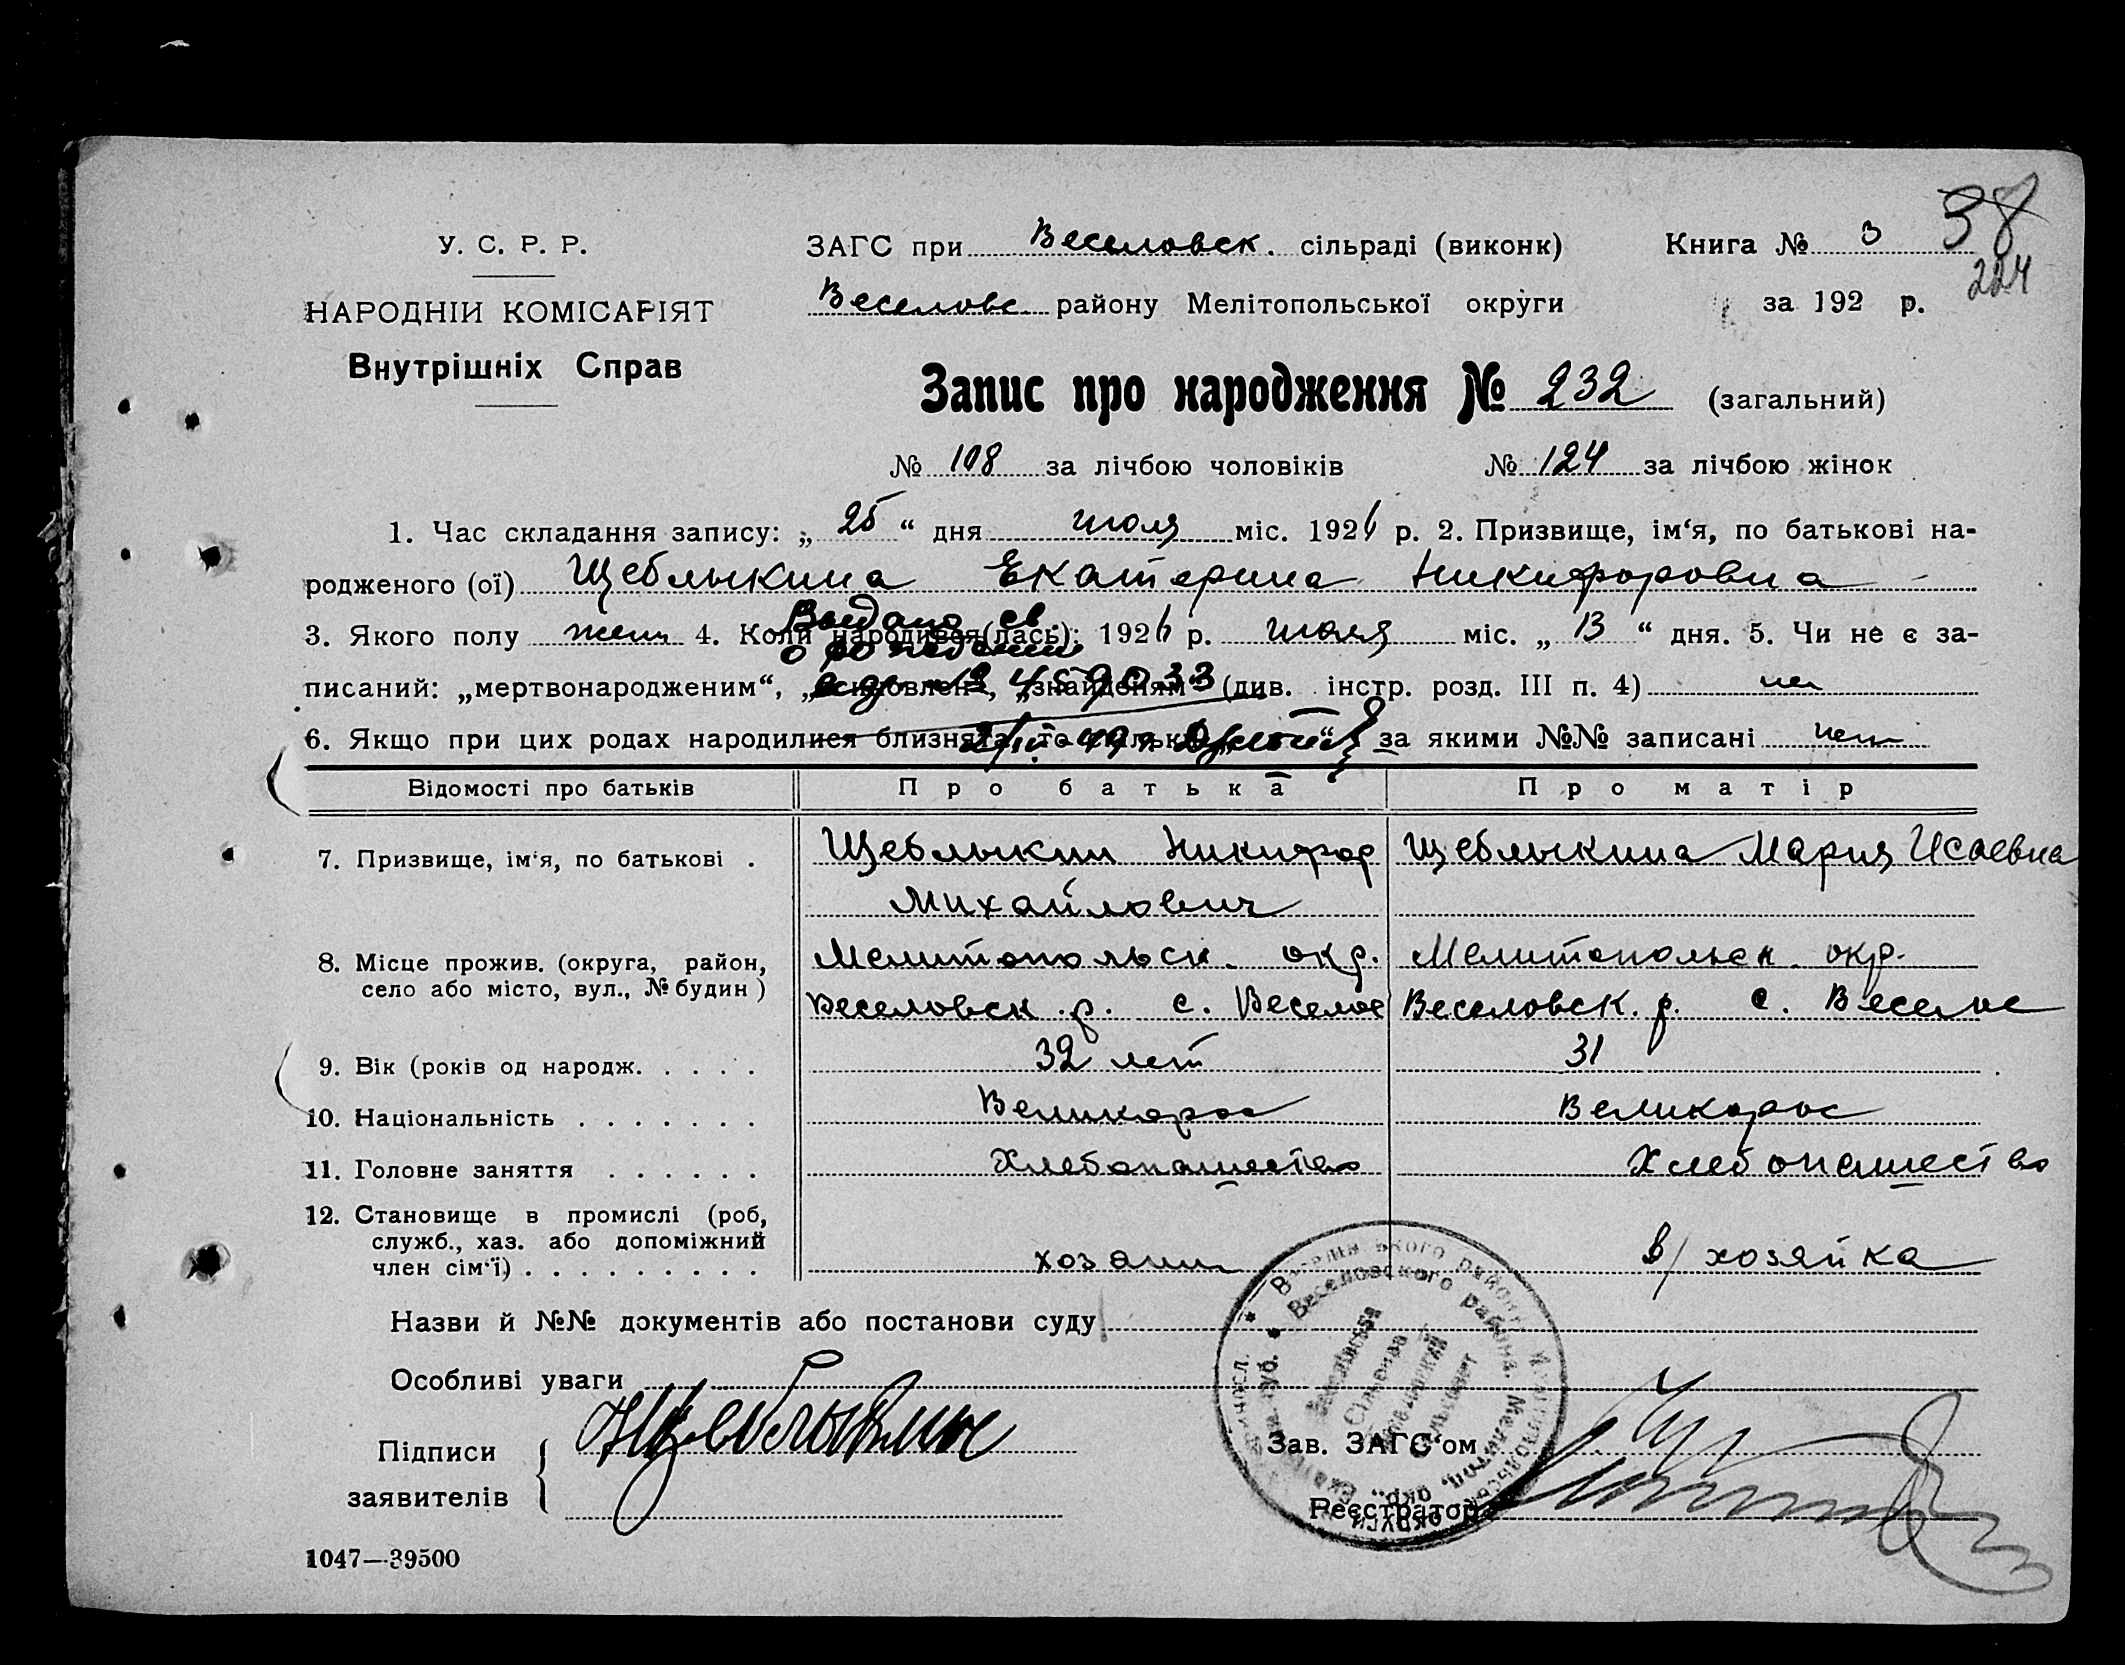 У. С. Р. Р.
НАРОДНІЙ КОМІСАРІЯТ
Внутрішніх Справ
ЗАГС при Веселовск. сільраді (виконк)
Книга № 3
38
224
Веселовс. району Мелітопольської округи
за 192 р.
Запис про народження № 232 (загальний)
№ 108 за лічбою чоловіків № 124 за лічбою жінок
1. Час складання запису: „ 25 “ дня июля міс. 1926 р. 2. Призвище, ім‘я, по батькові на-
родженого (ої) Щеблыкина Екатерина Никифоровна
Выдано св.
3. Якого полу жен 4. Коли народився(лась): 1926 р. июля міс. „ 13 “ дня. 5. Чи не є за-
о рождении
писаний: „мертвонародженим“, „усиновлен“, „знайденям“ (див. інстр. розд. III п. 4) нет
6. Якщо при цих родах народилися близнята, то скільки „ “ за якими №№ записані нет
Відомості про батьків
Про батька
Про матір
7. Призвище, ім‘я, по батькові .
Щеблыкин Никифор
Михайлович
Щеблыкина Мария Исаевна
8. Місце прожив. (округа, район,
село або місто, вул., № будин )
Мелитопольск. окр.
Веселовск. р. с. Веселое
Мелитопольск. окр.
Веселовск. р. с. Веселое
9. Вік (років од народж. . . . .
32 лет
31
10. Національність . . . . . . .
Великорос
Великорос
11. Головне заняття . . . . . .
Хлебопашество
Хлебопашество
12. Становище в промислі (роб,
служб., хаз. або допоміжний
член сім‘ї) . . . . . . . . .
хозаин
в/ хозяйка
Назви й №№ документів або постанови суду
Особливі уваги
Підписи
заявителів
Нщеблыкин
Веселовского района, Мелитоп. окр.
Зав. ЗАГС‘ом
Реєстратор
1047—39500